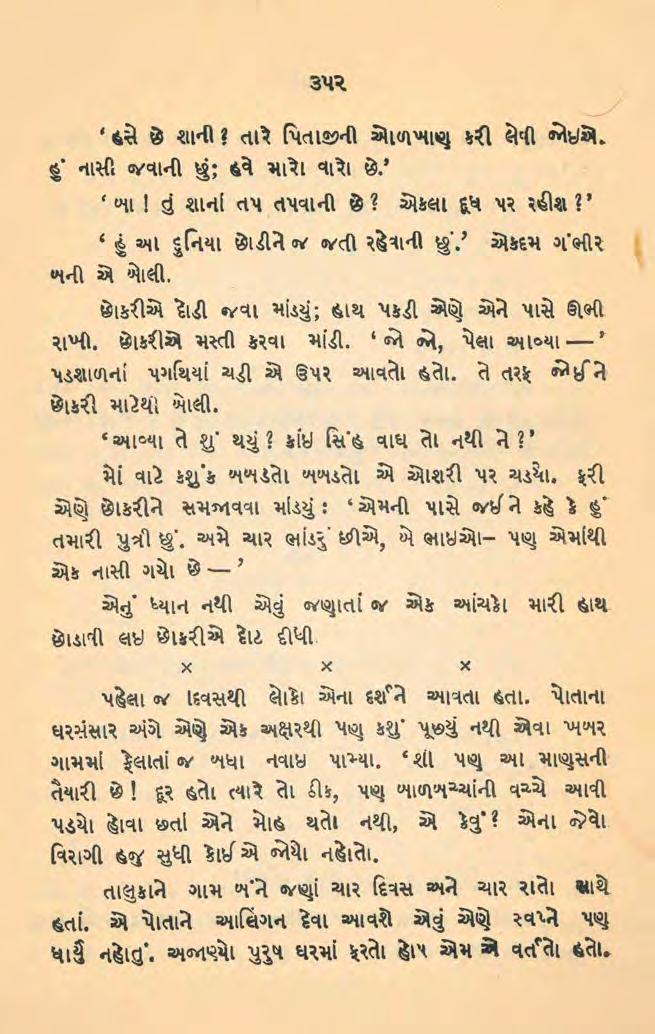 ૩૫૨
‘ હસે છે શાની ? તારે પિતાજીની ઓળખાણ કરી લેવી જોઇએ.
હું નાસી જવાની છું; હવે મારો વારો છે.’
‘ બા ! તું શાનાં તપ તપવાની છે ? એકલા દૂધ પર રહીશ ?’
‘ હું આ દુનિયા છોડીને જ જતી રહેવાની છું.’ એકદમ ગંભીર
બની એ બોલી.
છોકરીએ દોડી જવા માંડયું; હાથ પકડી એણે એને પાસે ઊભી
રાખી. છોકરીએ મસ્તી કરવા માંડી. ‘ જો જો, પેલા આવ્યા — ’
પડશાળનાં પગથિયાં ચડી એ ઉપર આવતો હતો. તે તરફ જોઈને
છોકરી માટેથી બોલી.
‘આવ્યા તે શું થયું ? કાંઇ સિંહ વાઘ તો નથી ને ?’
મોં વાટે કશુંક બબડતો બબડતો એ ઓશરી પર ચડયો. ફરી
એણે છોકરીને સમજાવવા માંડયું : ‘એમની પાસે જઈને કહે કે હું
તમારી પુત્રી છું. અમે ચાર ભાંડરું છીએ, બે ભાઇઓ– પણ એમાંથી
એક નાસી ગયો છે — ’
એનું ધ્યાન નથી એવું જણાતાં જ એક આંચકો મારી હાથ
છોડાવી લઇ છોકરીએ દોટ દીધી.
× × ×
પહેલા જ દિવસથી લોકો એના દર્શને આવતા હતા. પોતાના
ઘરસંસાર અંગે એણે એક અક્ષરથી પણ કશું પૂછયું નથી એવા ખબર
ગામમાં ફેલાતાં જ બધા નવાઇ પામ્યા. ‘શી પણ આ માણસની
તૈયારી છે ! દૂર હતો ત્યારે તો ઠીક, પણ બાળબચ્ચાંની વચ્ચે આવી
પડયો હોવા છતાં એને મોહ થતો નથી, એ કેવું ? એના જેવો
વિરાગી હજુ સુધી કોઈએ જોયો નહોતો.
તાલુકાને ગામ બંને જણાં ચાર દિવસ અને ચાર રાતો સાથે
હતાં. એ પોતાને આલિંગન દેવા આવશે એવું એણે સ્વપ્ને પણ
ધાર્યું નહોતું. અજાણ્યો પુરુષ ઘરમાં ફરતો હોય એમ એ વર્તતો હતો.